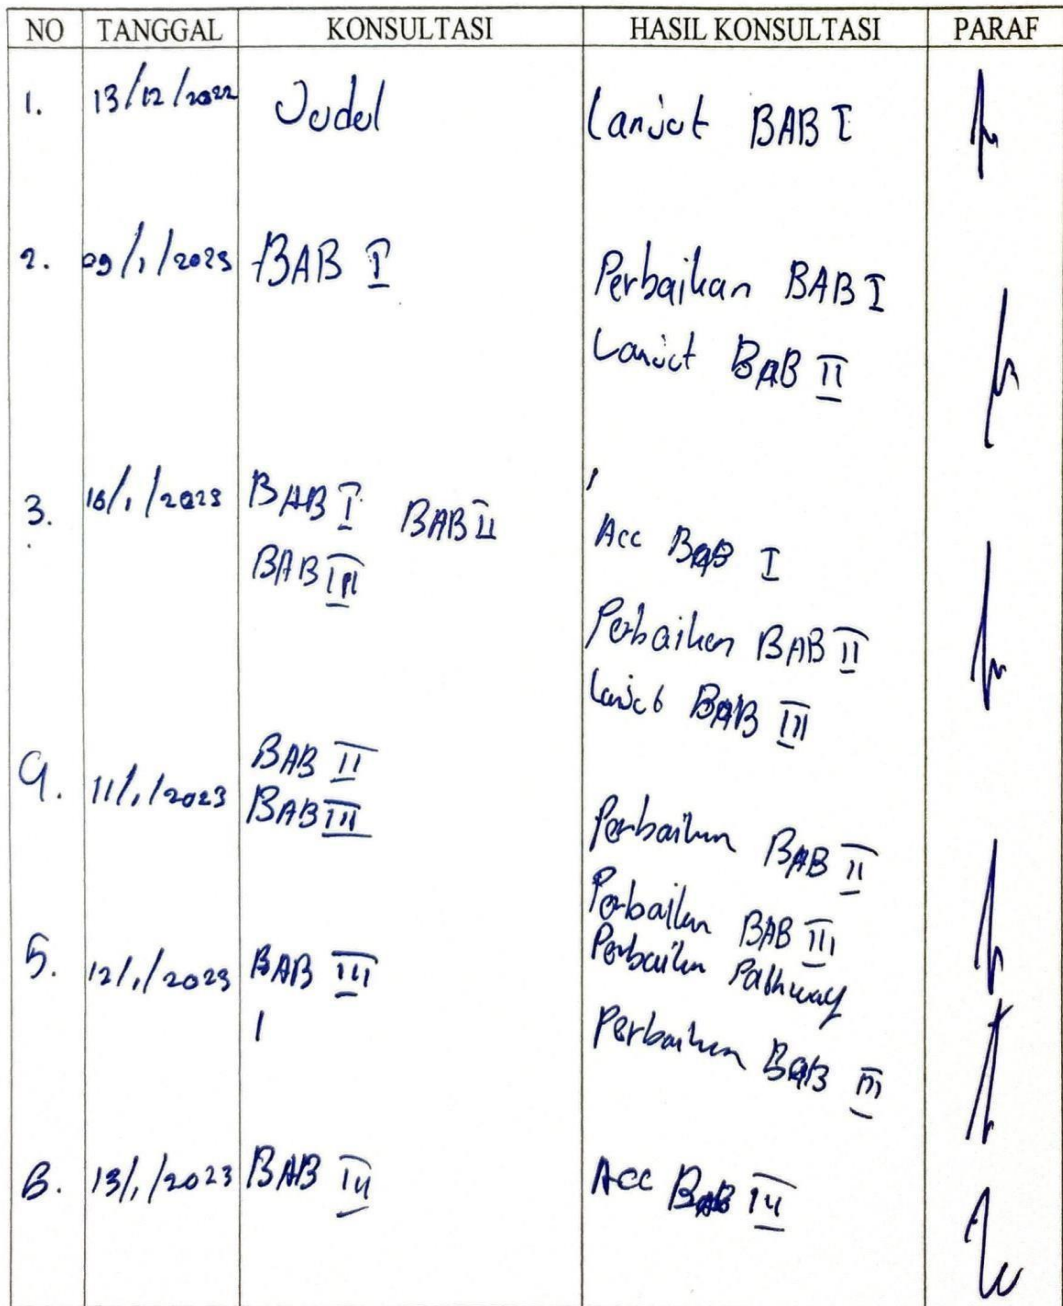 NO TANGGAL KONSULTASI HASIL KONSULTASI PARAF
1. 13/12/2022 Judul Lanjut BAB I
2. 09/1/2023 BAB I Perbaikan BAB I
Lanjut BAB II
3. 16/1/2023 BAB I BAB II
BAB III
Acc BAB I
Perbaikan BAB II
Lanjut BAB III
4. 11/1/2023 BAB II
BAB III
Perbaikan BAB II
Perbaikan BAB III
Perbaikan Pathway
5. 12/1/2023 BAB III
Perbaikan BAB III
6. 13/1/2023 BAB III Acc BAB III